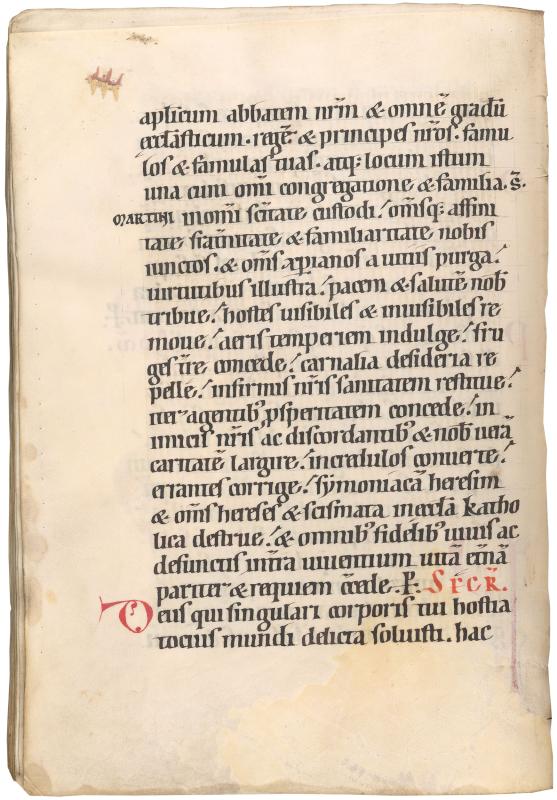 aplicum abbatem nr̄m & omnē gradū
eccl̄asticum · regē & principes nr̄os · famu
los & famulas tuas · atq; locum istum
una cum om̄i congregatione & familia · s̄.
MARTINI in om̄i sc̄itate custodi / om̄sq; affini
tate frat̄nitate & familiaritate nobis
iunctos · & om̄s xp̄ianos a uitiis purga /
uirtutibus illustra / pacem & salutē nob̄
tribue / hostes uisibiles & inuisibiles re
moue / aeris temperiem indulge / fru
ges t̄re concede / carnalia desideria re
pelle / infirmis nr̄is sanitatem restitue /
iter agentib; ꝓsperitatem concede / in
imicis nr̄is ac discordantib; & nob̄ uerā
caritatē largire / incredulos conuerte /
errantes corrige / symoniacā heresim
& om̄s hereses & scismata in eccl̄a katho
lica destrue / & omnib; fidelib; uiuis ac
defunctis in t̄ra uiuentium uitā et̄nā
pariter & requiem c̄cede . P. SECR̄.
Deus qui singulari corporis tui hostia
tocius mundi delicta soluisti . hac